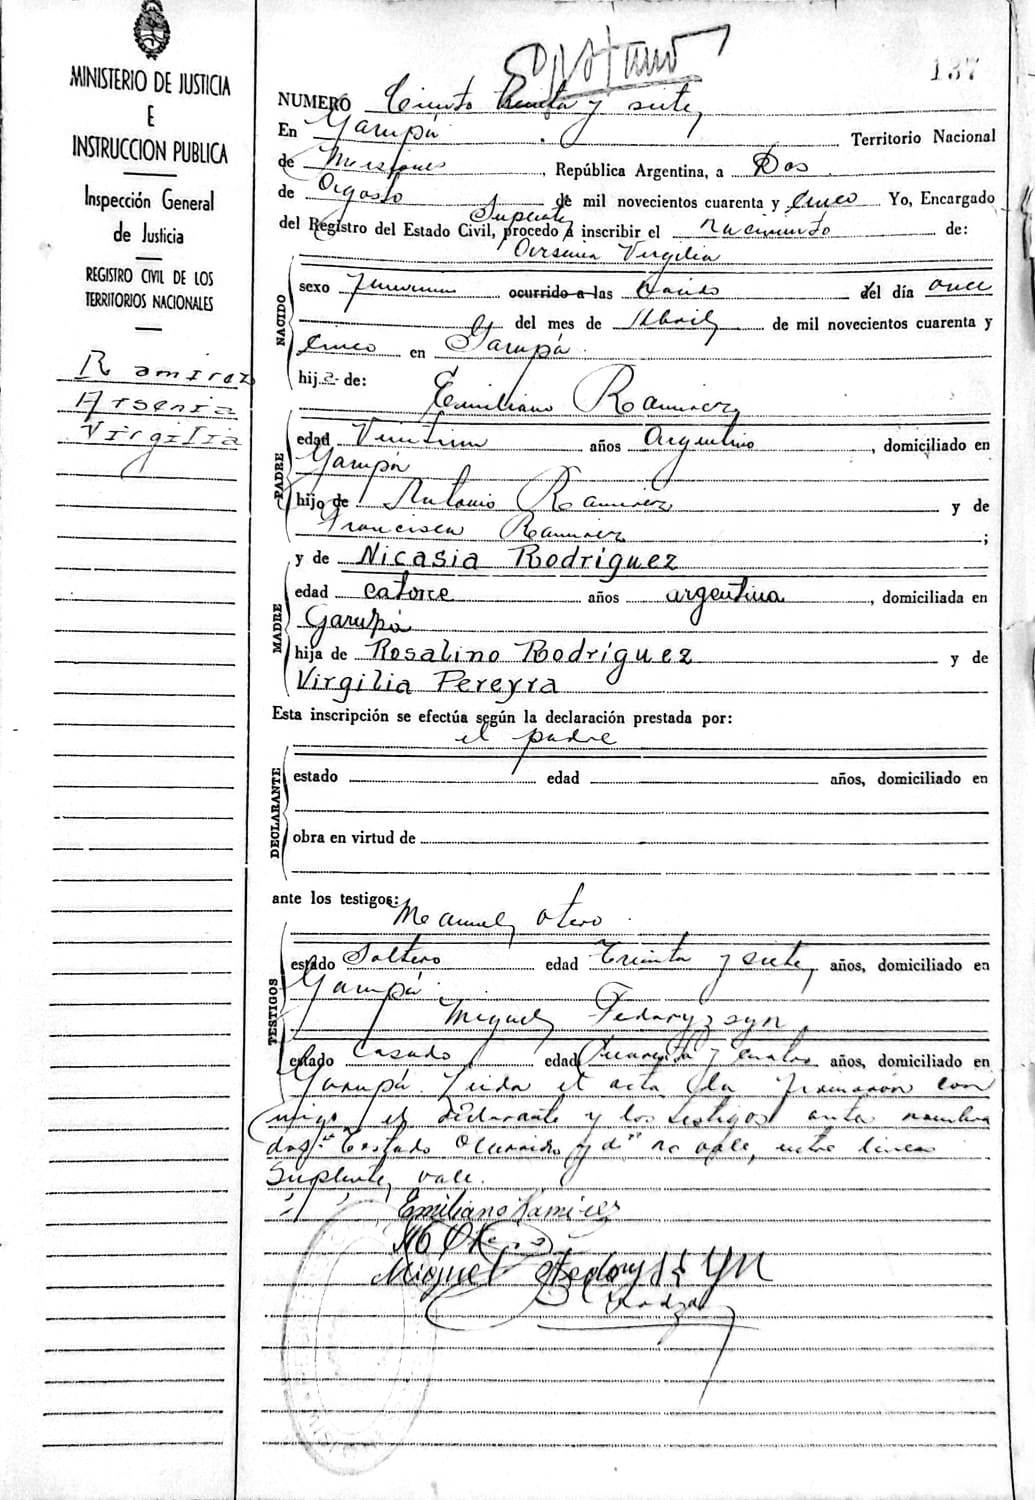 137
MINISTERIO DE JUSTICIA
E
INSTRUCCION PUBLICA
Inspección General
de Justicia
REGISTRO CIVIL DE LOS
TERRITORIOS NACIONALES
Ramirez
Arsenia
Virgilia
NUMERO Ciento treinta y siete,
En Garupá Territorio Nacional
de Misiones, República Argentina, a Dos
de Agosto de mil novecientos cuarenta y Cinco Yo, Encargado
Suplente
del Registro del Estado Civil, procedo a inscribir el nacimiento de:
Arsenia Virgilia
NACIDO
sexo femenino ocurrido a las nacido del día once
del mes de Abril de mil novecientos cuarenta y
Cinco en Garupá.
hija de: Emiliano Ramirez
PADRE
edad Veintiun años Argentino, domiciliado en
Garupá
hijo de Antonio Ramirez y de
Francisca Ramirez;
y de Nicasia Rodríguez
MADRE
edad catorce años argentina, domiciliada en
Garupá
hija de Rosalino Rodríguez y de
Virgilia Pereyra
Esta inscripción se efectúa según la declaración prestada por:
el padre
DECLARANTE
estado edad años, domiciliado en
obra en virtud de
ante los testigos: Manuel Otero
TESTIGOS
estado Soltero edad Treinta y siete, años, domiciliado en
Garupá
Miguel Fedoryszyn
estado Casado edad Cuarenta y cuatro años, domiciliado en
Garupá. Leida el acta la firmaron con
migo el declarante y los testigos ante nombra
dos. Testado Ocurrido y d" no vale, entre lineas
Suplente, vale.
Emiliano Ramirez
Miguel Fedoryszyn